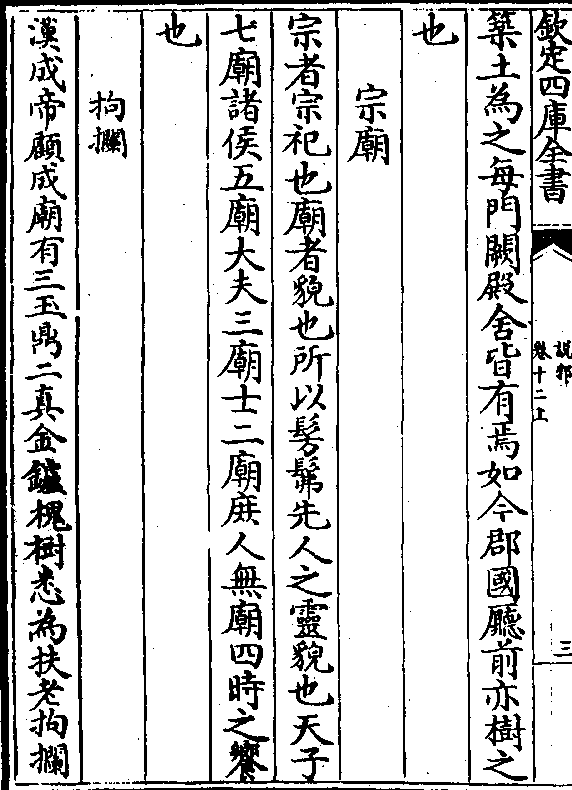 欽定四庫全書
說郛
卷十二上
三
築土為之每門闕殿舍皆有焉如今郡國廳前亦樹之
也
宗廟
宗者宗祀也廟者貌也所以髣髴先人之靈貌也天子
七廟諸侯五廟大夫三廟士二廟庶人無廟四時之饗
也
拘攔
漢成帝顧成廟有三玉鼎二真金鑪槐樹悉為扶老拘攔